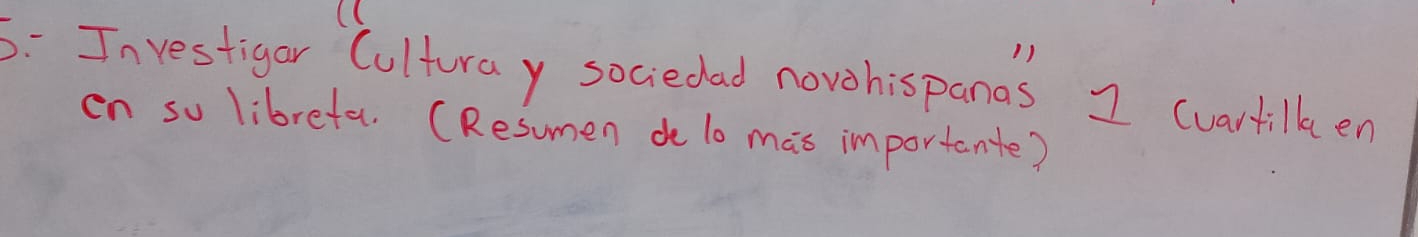 5.- Investigar "Cultura y sociedad novohispanas" 1 cuartilla en
en su libreta. (Resumen de lo más importante)